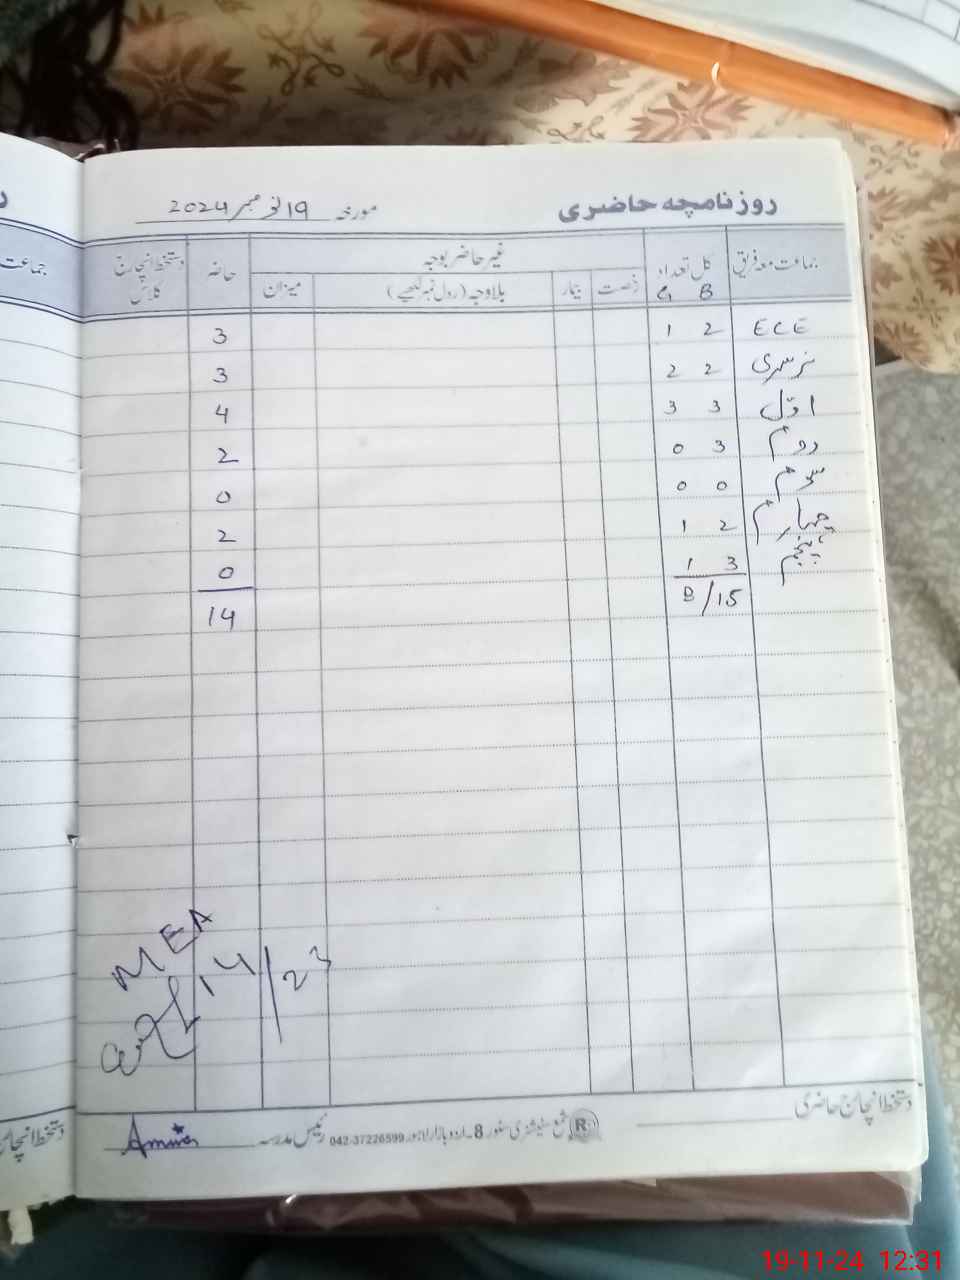 روزنامچہ حاضری مورخہ 19 نومبر 2024
جماعت معہ فریق کل تعداد غیر حاضر بوجہ حاضر دستخط انچارج کلاس
G B رخصت بیمار بلاوجہ (رول نمبر لکھیے) میزان
ECE 2 1 3
نرسری 2 2 3
اوّل 3 3 4
دوم 3 0 2
سوم 0 0 0
چہارم 2 1 2
پنجم 3 1 0
8/15 14
MEA
14/23
دستخط انچارج حاضری
R شمع سٹیشنری سٹور 8۔اردو بازار لاہور 042-37226599 رئیس مدرسہ
جماعت
دستخط انچارج
19-11-24 12:31